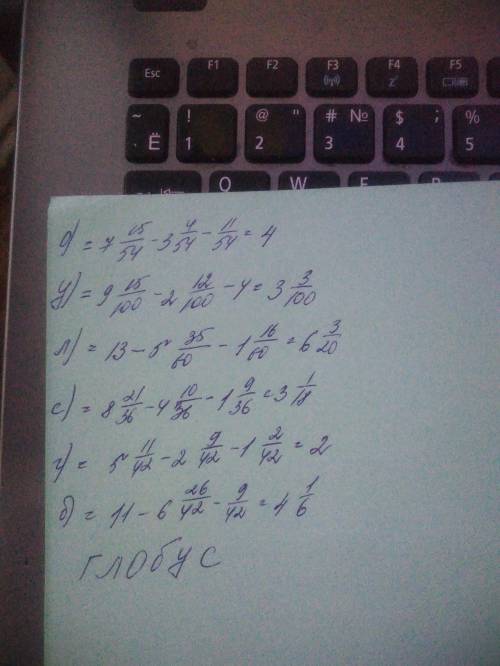 Esc F1 F2 F3 F4 F5
~ Ё ! 1 @ " 2 # № 3 $ ; 4 % 5
Q W E R
о) = 7 15/54 - 3 4/54 - 11/54 = 4
у) = 9 15/100 - 2 12/100 - 4 = 3 3/100
л) = 13 - 5 35/60 - 1 16/60 = 6 3/20
с) = 8 21/36 - 4 10/36 - 1 9/36 = 3 1/18
г) = 5 11/42 - 2 9/42 - 1 2/42 = 2
б) = 11 - 6 26/42 - 9/42 = 4 1/6
ГЛОбУС